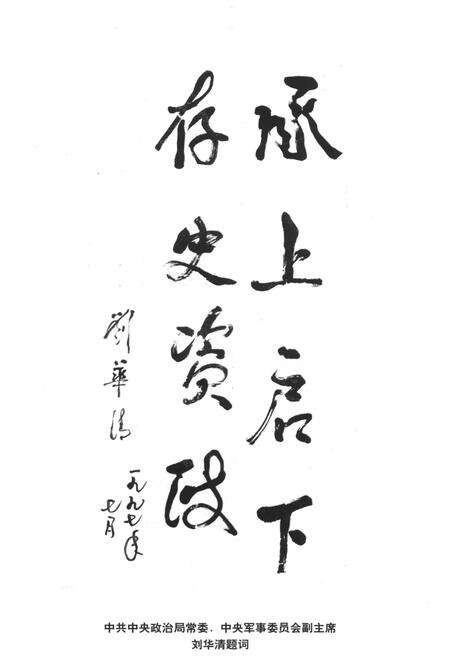 承上启下
存史资政
劉華清
一九九七年
七月
中共中央政治局常委、中央军事委员会副主席
刘华清题词